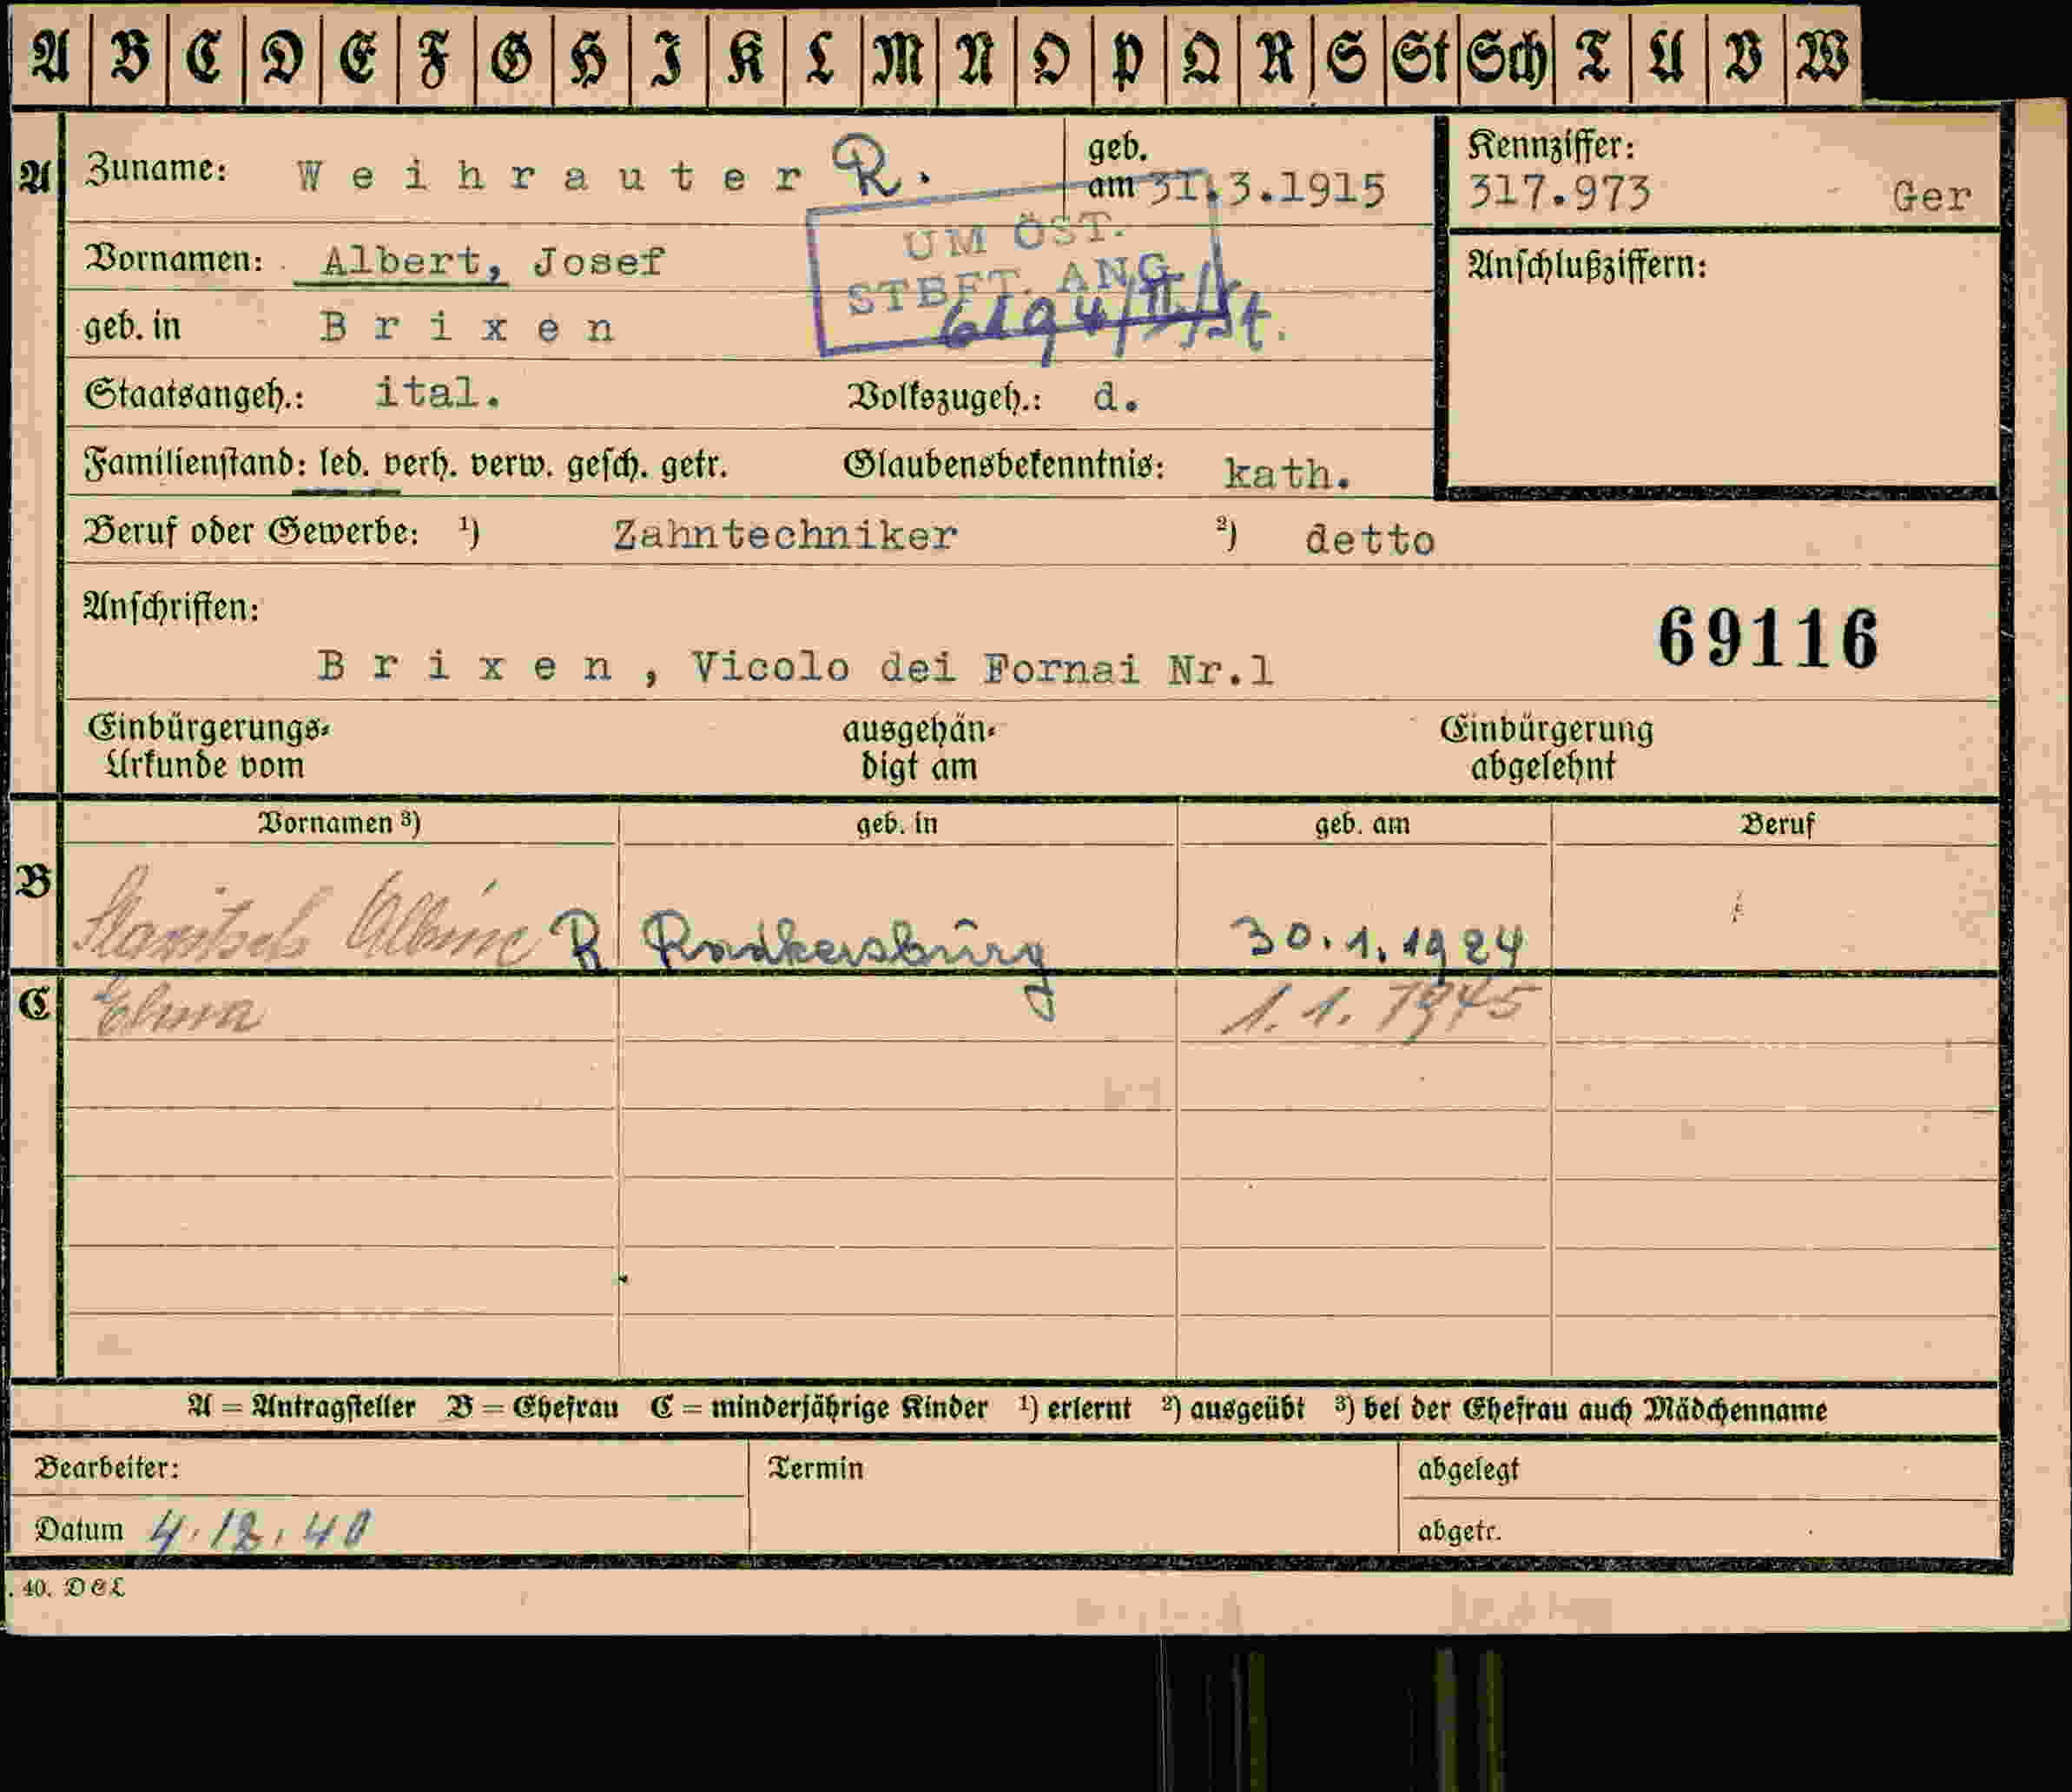 A B C D E F G H I K L M N O P Q R S St Sch T U V W
A Zuname: Weihrauter R. geb. am 31.3.1915
Kennziffer: 317.973 Ger
UM ÖST.
STBFT. ANG.
6194/II/St.
Vornamen: Albert, Josef
Anschlußziffern:
geb. in Brixen
Staatsangeh.: ital. Volkszugeh.: d.
Familienstand: led. verh. verw. gesch. getr. Glaubensbekenntnis: kath.
Beruf oder Gewerbe: ¹) Zahntechniker ²) detto
Anschriften:
69116
Brixen, Vicolo dei Fornai Nr.1
Einbürgerungs- ausgehän- Einbürgerung
Urkunde vom digt am abgelehnt
Vornamen ³) geb. in geb. am Beruf
B Albine R Radkersburg 30.1.1924
C 1.1.1945
A = Antragsteller B = Ehefrau C = minderjährige Kinder ¹) erlernt ²) ausgeübt ³) bei der Ehefrau auch Mädchenname
Bearbeiter: Termin abgelegt
Datum 4.12.40 abgetr.
. 40. DEL